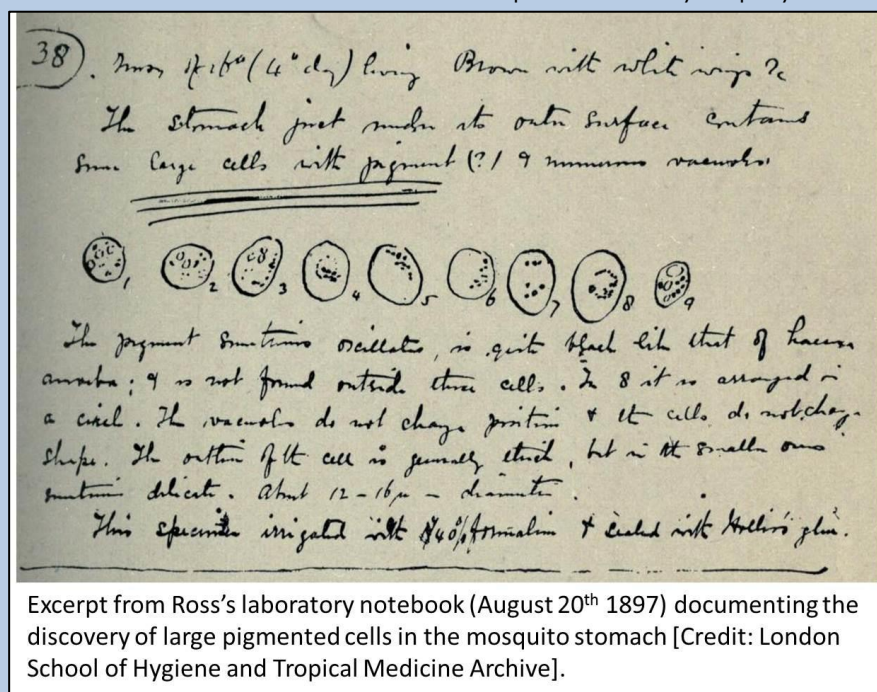 38. Mosq of 16th (4th day) living Brown with white wings
The stomach just under its outer surface contains
some large cells with pigment (?) & numerous vacuoles
1 2 3 4 5 6 7 8 9
The pigment sometimes oscillates, is quite black like that of haem
amoeba; & is not found outside these cells. In 8 it is arranged in
a circle. The vacuoles do not change position & the cells do not change
shape. The outline of the cell is generally thick, but in the smaller ones
sometimes delicate. About 12-16µ in diameter.
This specimen irrigated with 40% formalin & sealed with Hollis's glue.
Excerpt from Ross's laboratory notebook (August 20th 1897) documenting the
discovery of large pigmented cells in the mosquito stomach [Credit: London
School of Hygiene and Tropical Medicine Archive].